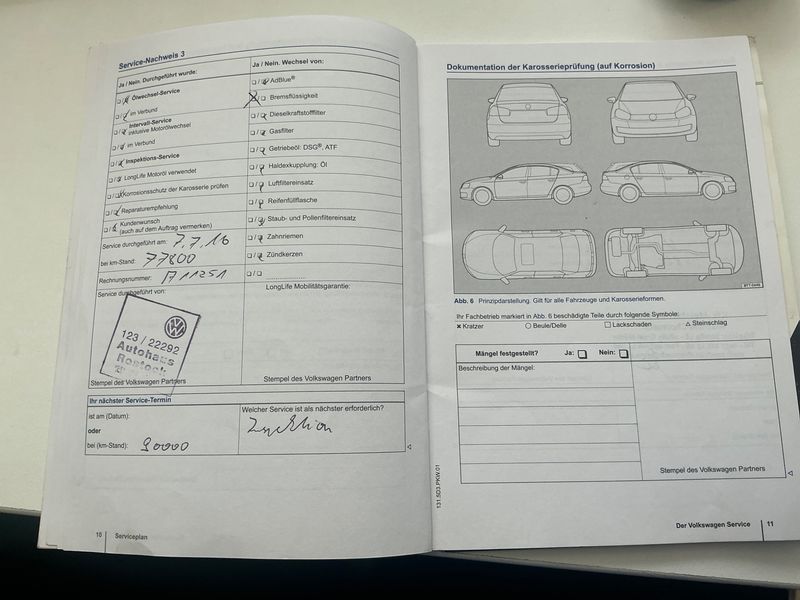 Service-Nachweis 3
Ja / Nein. Durchgeführt wurde:
Ölwechsel-Service
im Verbund
Intervall-Service
inklusive Motorölwechsel
im Verbund
Inspektions-Service
LongLife Motoröl verwendet
Korrosionsschutz der Karosserie prüfen
Reparaturempfehlung
Kundenwunsch
(auch auf dem Auftrag vermerken)
Service durchgeführt am: 7.7.16
bei km-Stand: 77800
Rechnungsnummer:
Service durchgeführt von:
123 / 22292
Autohaus
Rostock
Stempel des Volkswagen Partners
Ja / Nein. Wechsel von:
AdBlue®
Bremsflüssigkeit
Dieselkraftstofffilter
Gasfilter
Getriebeöl: DSG®, ATF
Haldexkupplung: Öl
Luftfiltereinsatz
Reifenfüllflasche
Staub- und Pollenfiltereinsatz
Zahnriemen
Zündkerzen
LongLife Mobilitätsgarantie:
Stempel des Volkswagen Partners
Ihr nächster Service-Termin
ist am (Datum):
oder
bei (km-Stand): 90000
Welcher Service ist als nächster erforderlich?
Inspektion
10 Serviceplan
Dokumentation der Karosserieprüfung (auf Korrosion)
Abb. 6 Prinzipdarstellung. Gilt für alle Fahrzeuge und Karosserieformen.
Ihr Fachbetrieb markiert in Abb. 6 beschädigte Teile durch folgende Symbole:
× Kratzer ○ Beule/Delle □ Lackschaden △ Steinschlag
Mängel festgestellt? Ja: Nein:
Beschreibung der Mängel:
Stempel des Volkswagen Partners
131.5D3.PKW.01
Der Volkswagen Service 11